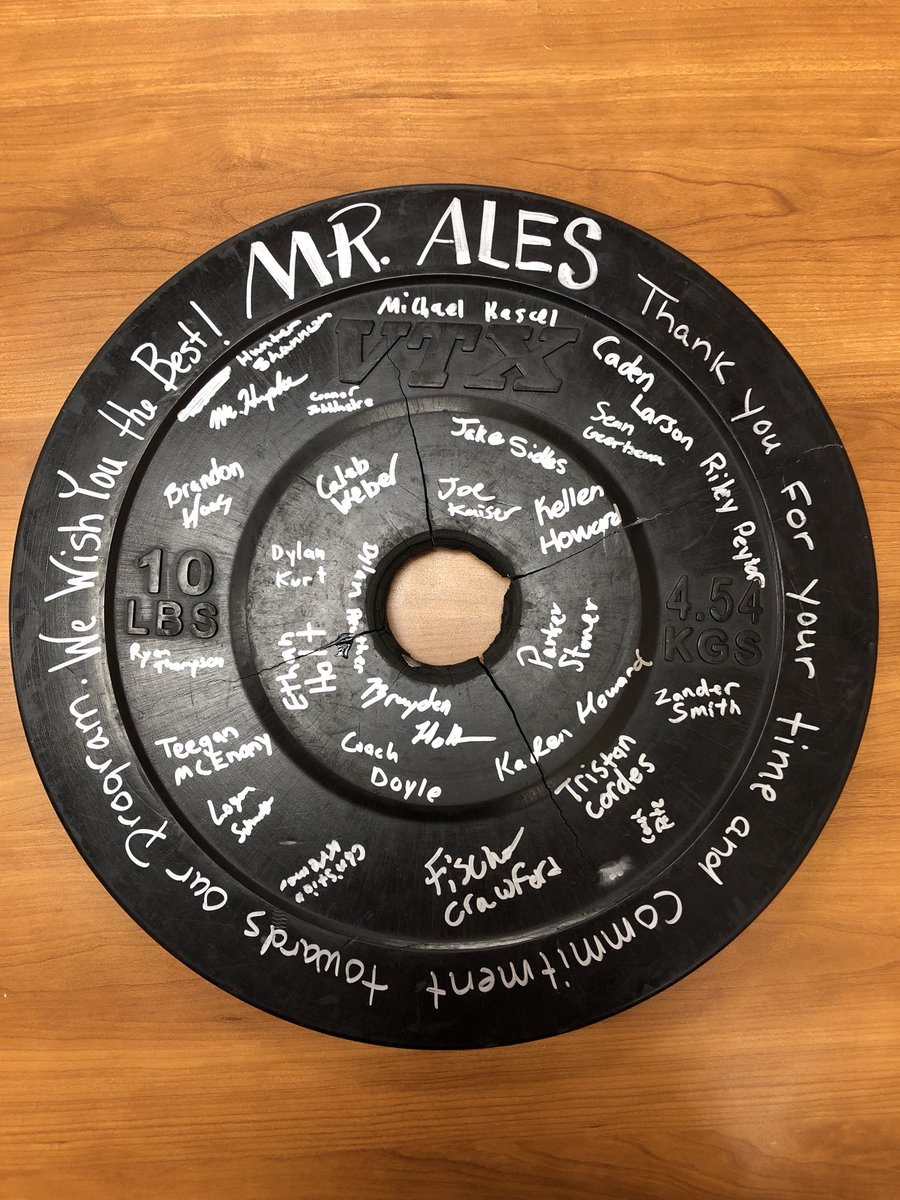 MR. ALES
Thank you For your time and Commitment towards our Program. We Wish You the Best!
Michael Kascel
VTX
Hunter
Shannon
Mr.
Connor
Caden
Larson
Sean
Jake Sides
Caleb
Weber
Joe
Kaiser
Kellen
Howard
Riley Peyton
Brandon
10
LBS
4.54
KGS
Dylan
Kurt
Dylan
Ryan
Thompson
Ethan
Holt
Parker
Stoner
Brayden
Holt
Karen Howard
Zander
Smith
Teegan
McEnany
Coach
Doyle
Tristan
Cordes
Logan
Christian
Fischer
Crawford